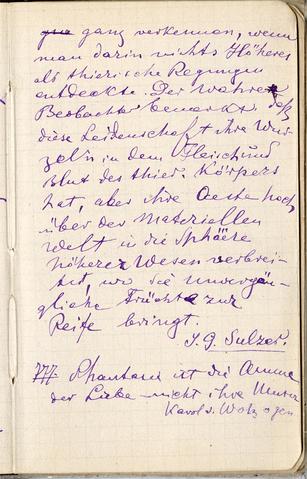 ganz verkennen, wenn
man darin nichts Höheres
als thierische Regungen
entdeckte. Der wahre
Beobachter bemerkt, daß
diese Leidenschaft ihre Wur-
zeln in dem Fleisch und
Blut des thier. Körpers
hat, aber ihre Aeste hoch
über der materiellen
Welt in die Sphäre
höherer Wesen verbrei-
tet, wo sie unvergän-
gliche Früchte zur
Reife bringt.
J. G. Sulzer.
Phantasie ist die Amme
der Liebe – nicht ihre Mutter
Karol. v. Wolzogen